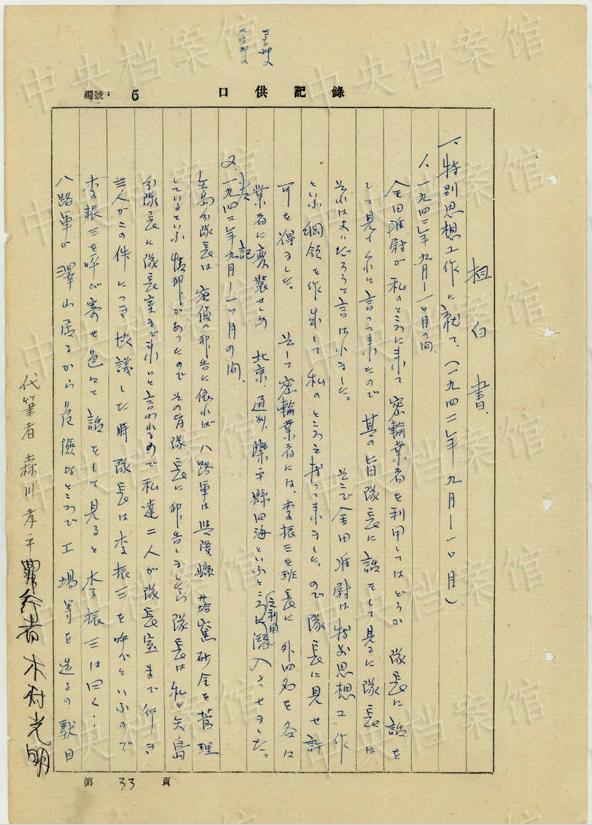 編號： 6
口供記錄
坦白書
一、特別思想工作に就て、（一九四二年九月—一〇月）
人、一九四二年九月—一〇月の間、
金田准尉が私のところに来て密輸業者を利用してはどうか 隊長に話を
して見てくれと言って来たので 其の旨隊長に話をして見るに隊長は
それは大いにやろうと言はれました。そこで金田准尉は特別思想工作
といふ綱領を作出して私のところに持って来ましたので隊長に見せ許
可を得ました。そして密輸業者には、李振三を班長に外四名を各に
業者に変装せしめ 北京 通州 灤平縣四海といふところに潜入させました。
又、一九四二年九月—一〇月の間、
矢島分隊長は 密偵の報告に依れば 八路軍は興隆縣 塔窯砂金を管理
しているといふ情報があったのでその旨隊長に報告しましたら隊長は私と矢島
分隊長に隊長室まで来いと言われるので私達二人が隊長室まで行き
三人がこの件につき協議した時隊長は李振三を呼べといふので
李振三を呼び寄せ色々と話をして見ると李振三は曰く…
八路軍が沢山居るから危險なところで工場等を造るの戰目
代筆者 森川孝平 罪行者 木村光明
第 33 頁
中央档案馆